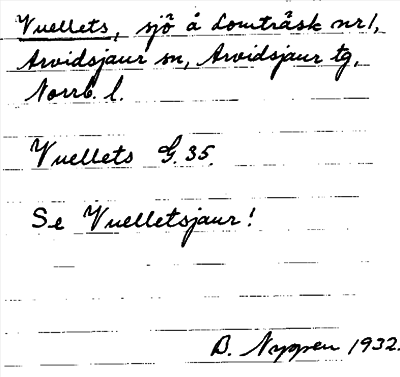 Vuellets, sjö å Lomträsk nr 1,
Arvidsjaur sn, Arvidsjaur tg,
Norrb. l.
Vuellets G. 35.
Se Vuelletsjaur!
B. Nyppen 1932.